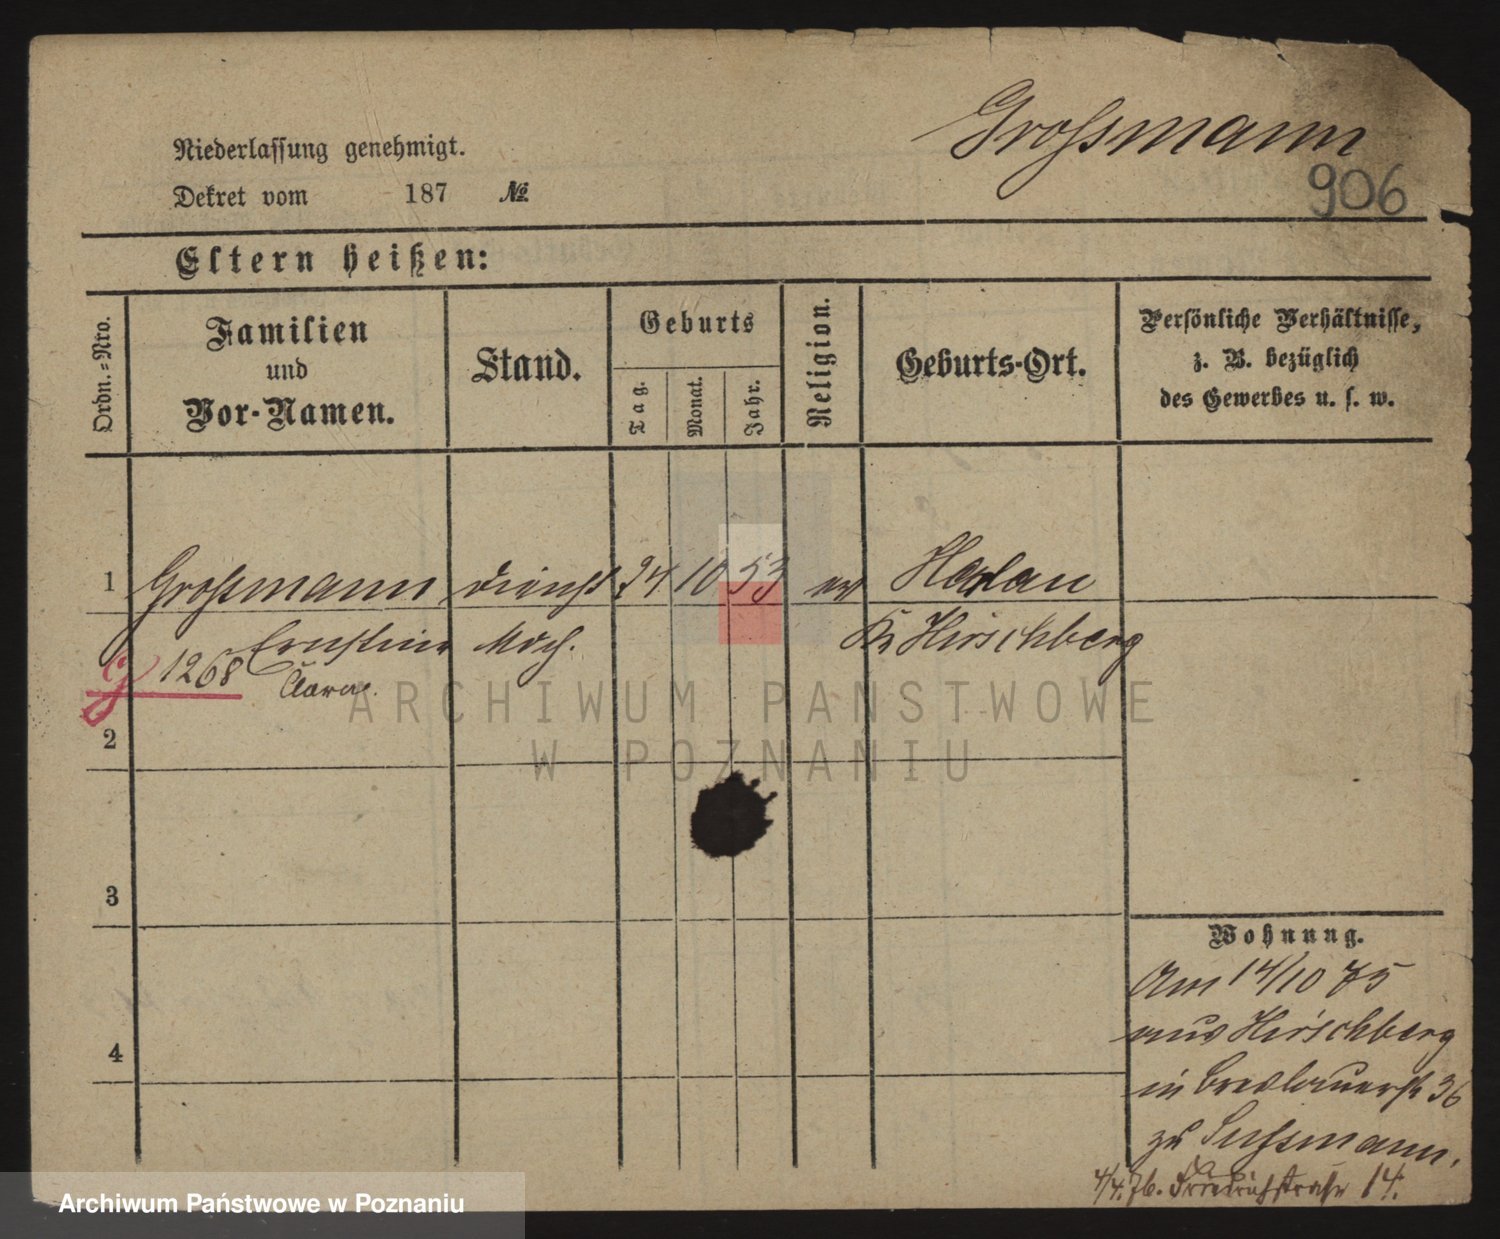 Grossmann
906
Niederlassung genehmigt.
Dekret vom 187 №
Eltern heißen:
Ordn.=Nro.
Familien
und
Vor-Namen.
Stand.
Geburts
Tag.
Monat.
Jahr.
Religion.
Geburts-Ort.
Persönliche Verhältnisse,
z. B. bezüglich
des Gewerbes u. s. w.
1 Grossmann dienst 24 10 53 ev
Ernstine Mdch. Kr Hirschberg
1268 Clara.
2
3
4
Wohnung.
Am 14/10 75
aus Hirschberg
in Breslauerstr 36
zu Sussmann.
4/4. 76. Friedrichstraße 14.
ARCHIWUM PANSTWOWE
W POZNANIU
Archiwum Państwowe w Poznaniu